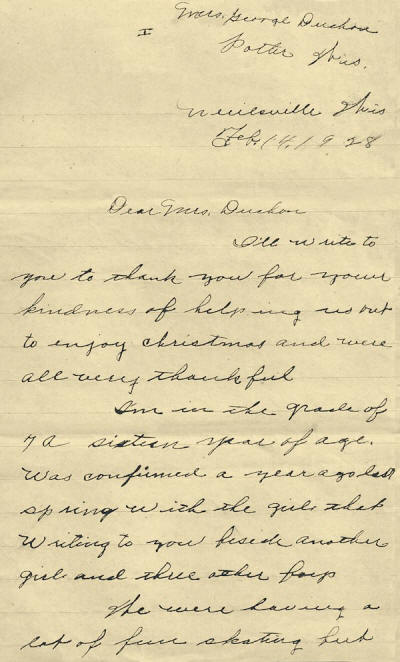 Mrs. George Duchow
I
Potter Wis.
Neillsville Wis
Feb. 14, 1928
Dear Mrs. Duchow
I'll write to
you to thank you for your
kindness of helping us out
to enjoy Christmas and were
all very thankful
I'm in the grade of
7A sixteen year of age.
Was confirmed a year ago last
spring with the girls that
writing to you beside another
girl and three other boys
We were having a
lot of fun skating but